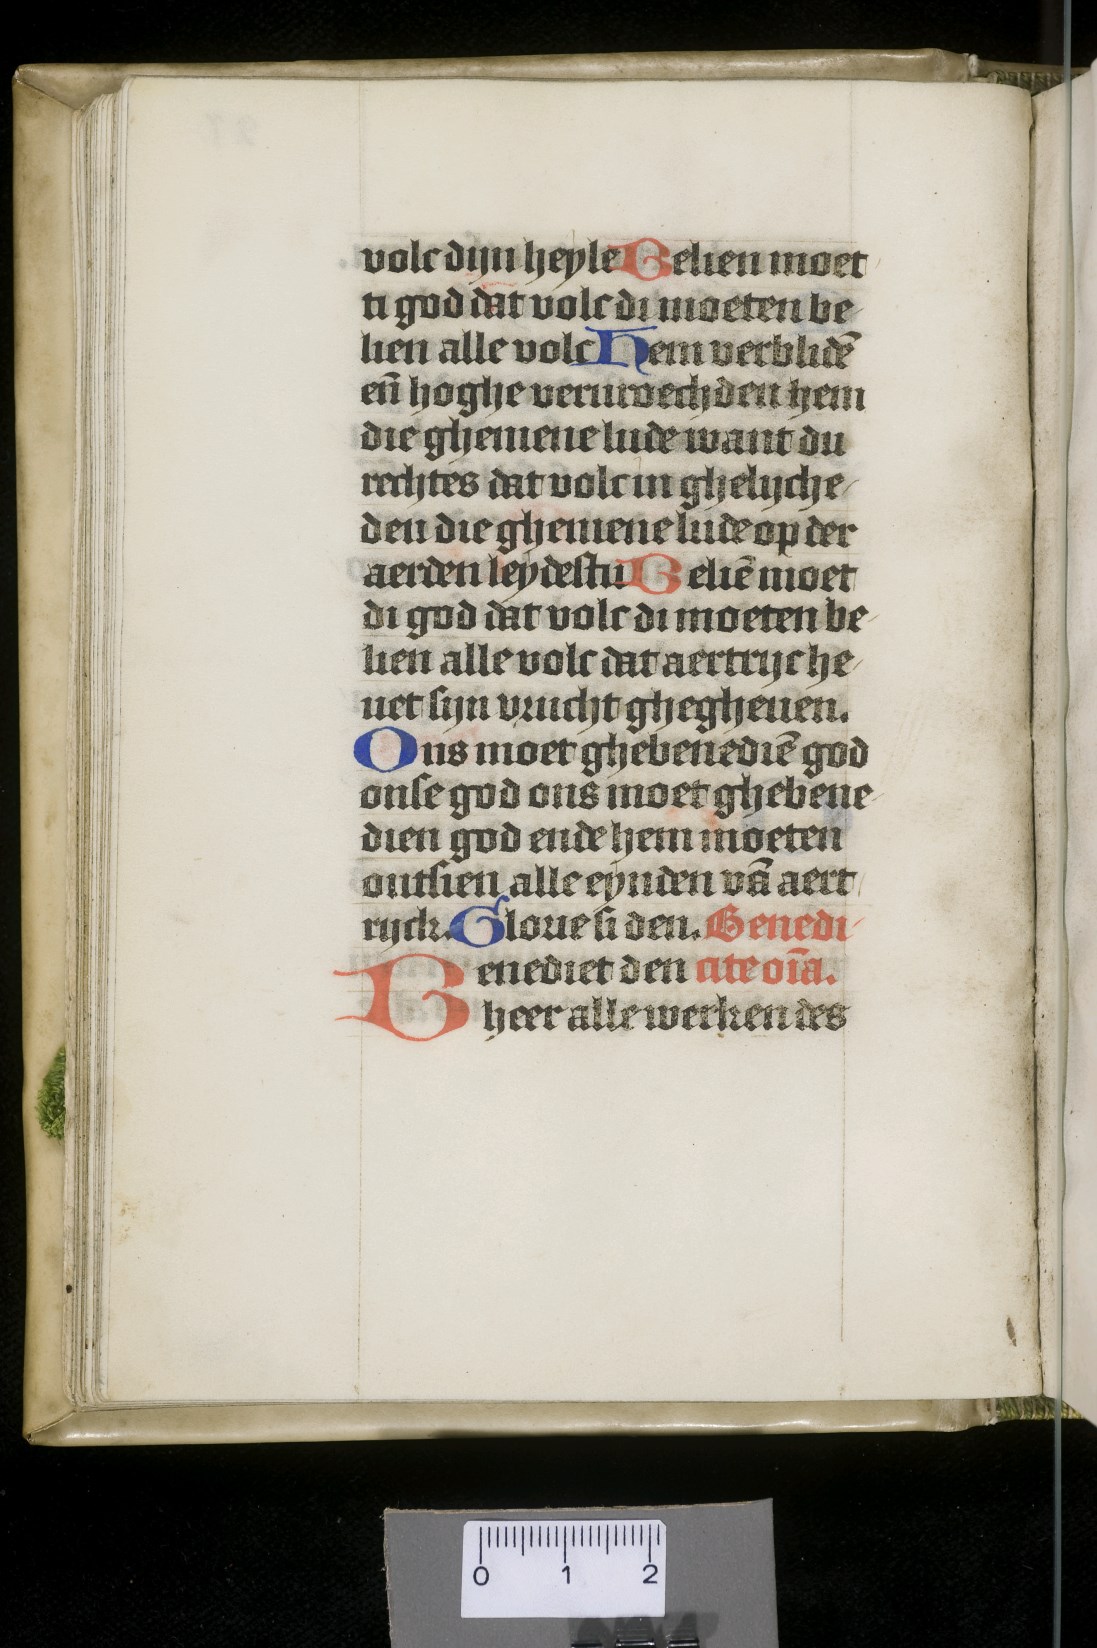 volc dijn heyle Belien moet
ti god dat volc di moeten be
lien alle volc Hem verblidē
eñ hoghe vervroechden hem
die ghemene lude want du
rechtes dat volc in ghelijche
den die ghemene lude op der
aerden leydestu Beliē moet
di god dat volc di moeten be
lien alle volc dat aertrijc he
uet sijn vrucht ghegheuen.
Ons moet ghebenediē god
onse god ons moet ghebene
dien god ende hem moeten
ontsien alle eynden vā aert
rijck. Glorie si den. Benedi
Benediet den cite oīa.
heer alle werken des
0 1 2